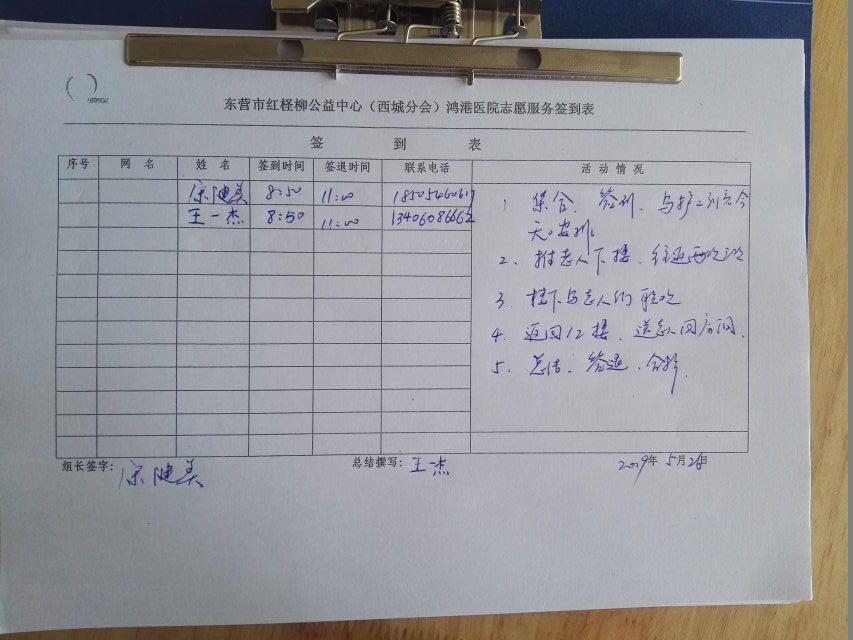 东营市红柽柳公益中心（西城分会）鸿港医院志愿服务签到表
签 到 表
序号 网 名 姓 名 签到时间 签退时间 联系电话 活 动 情 况
8:50 11:00
王一杰 8:50 11:00 13406086662
1、集合、签到、与护工到完今
天安排
2、推老人下楼、往返两次
3、楼下与老人们聊天
4、返回12楼、送老人回房间、
5、总结、签退、合影
组长签字： 总结撰写：王一杰 2019年5月26日